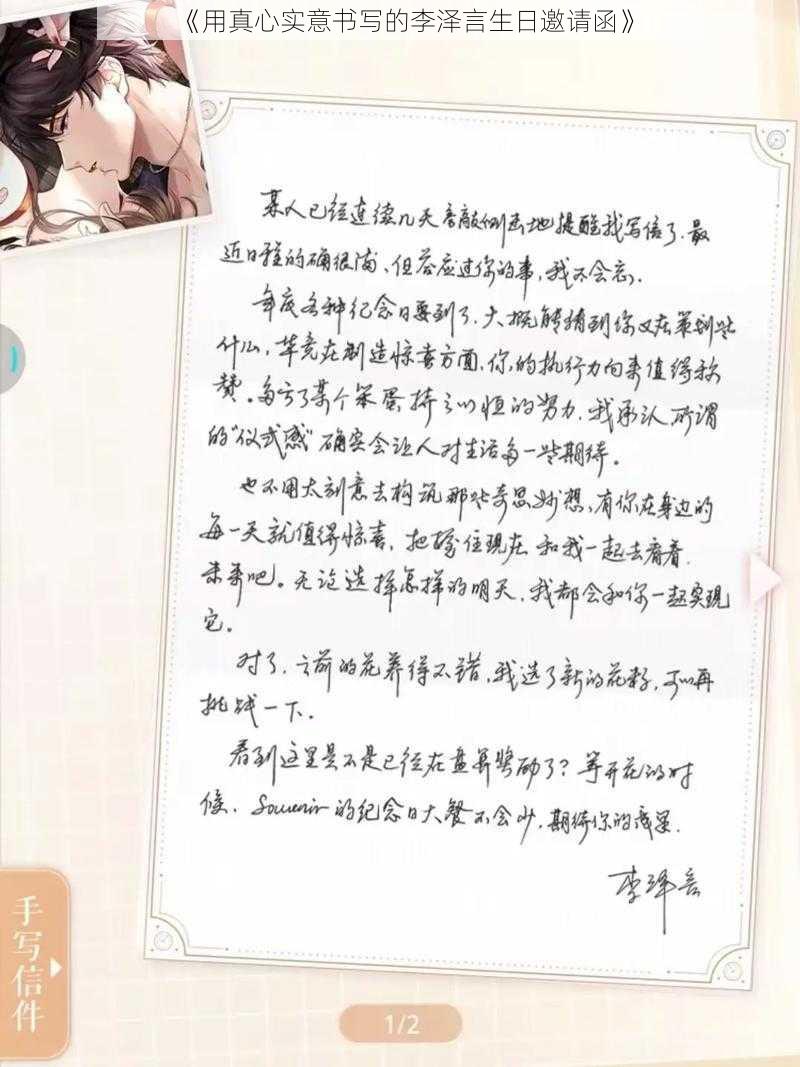 《用真心实意书写的李泽言生日邀请函》
某人已经连续几天旁敲侧击地提醒我写信了.最
近日程的确很满、但答应过你的事,我不会忘.
年底各种纪念日要到了.大概能猜到你又在策划些
什么,毕竟在制造惊喜方面、你的执行力向来值得称
赞。多亏了某个笨蛋持之以恒的努力.我承认,所谓
的“仪式感”确实会让人对生活多一些期待。
也不用太刻意去构筑那些奇思妙想、有你在身边的
每一天就值得惊喜.把握住现在和我一起去看看
未来吧。无论选择怎样的明天.我都会和你一起实现
它。
对了.之前的花养得不错,我选了新的花种,可以再
挑战一下.
看到这里是不是已经在盘算奖励了?等开花的时
候.Souvenir的纪念日大餐不会少.期待你的成果.
李泽言
手写信件
1/2